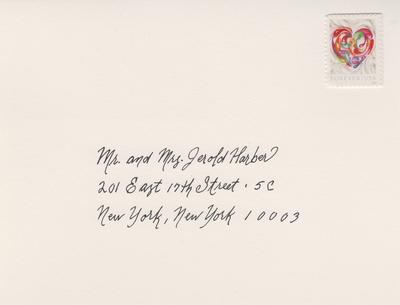 FOREVER USA
Mr. and Mrs. Jerold Harber
201 East 17th Street · 5C
New York, New York 10003